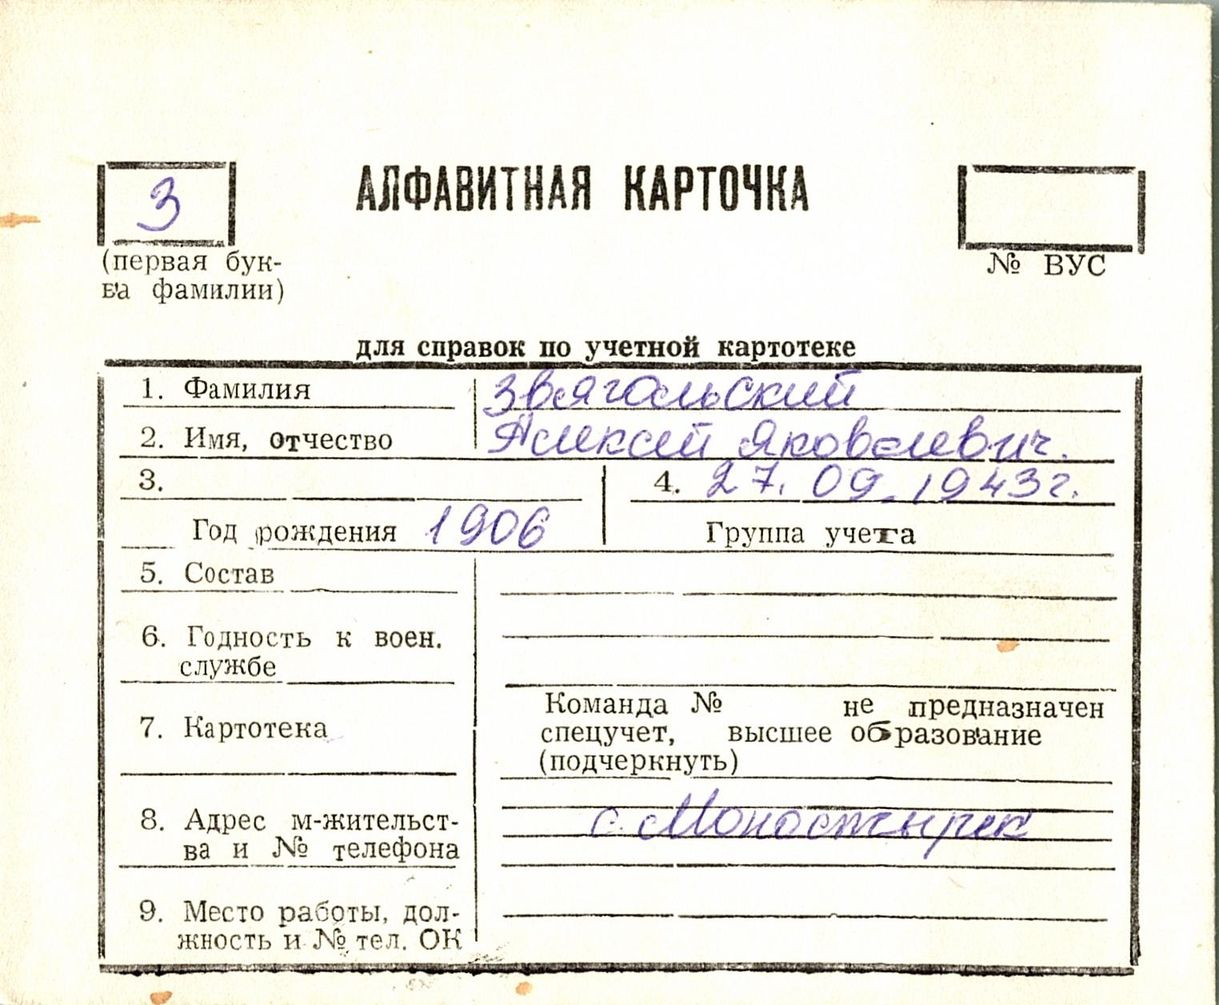 З
АЛФАВИТНАЯ КАРТОЧКА
(первая бук-
ва фамилии)
№ ВУС
для справок по учетной картотеке
1. Фамилия Звягольский
2. Имя, отчество Алексей Яковлевич.
3. 4. 27.09.1943г.
Год рождения 1906 Группа учета
5. Состав
6. Годность к воен.
службе
Команда № не предназначен
7. Картотека спецучет, высшее образование
(подчеркнуть)
8. Адрес м-жительст- с. Монастырек
ва и № телефона
9. Место работы, дол-
жность и № тел. ОК